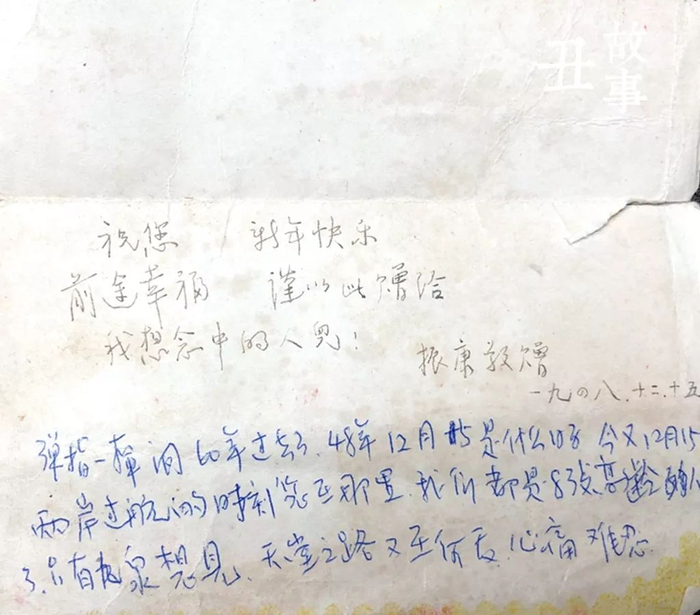 故事
丑
祝您 新年快乐
前途幸福 谨以此赠给
我想念中的人儿!
振康敬赠
一九四八.十二.十五
弹指一挥间60年过去了.48年12月15是什么日子 今又12月15
两岸过航的时刻您在那里.我们都是8旬高龄的人
了.只有九泉想见.天堂之路又在何方.心痛难忍